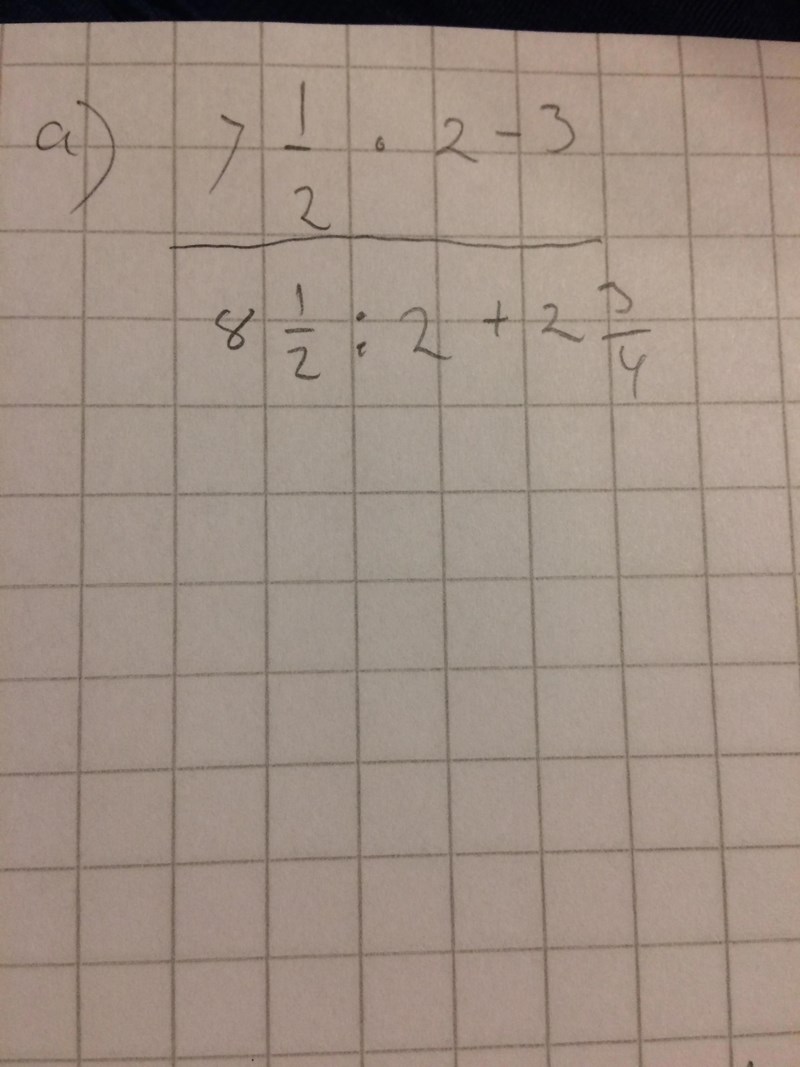 a) 7 1/2 · 2 - 3
8 1/2 : 2 + 2 3/4